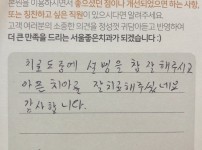 본원을 이용하시면서 좋으셨던 점이나 개선되었으면 하는 사항,
또는 칭찬하고 싶은 직원이 있으시다면 알려주세요.
고객 여러분의 소중한 의견을 정성껏 귀담아듣고 반영하여
더 큰 만족을 드리는 서울좋은치과가 되겠습니다 :)
치료 도중에 설명을 참 잘해주시고
아픈 치아를 잘 치료해주셨네요
감사합니다.